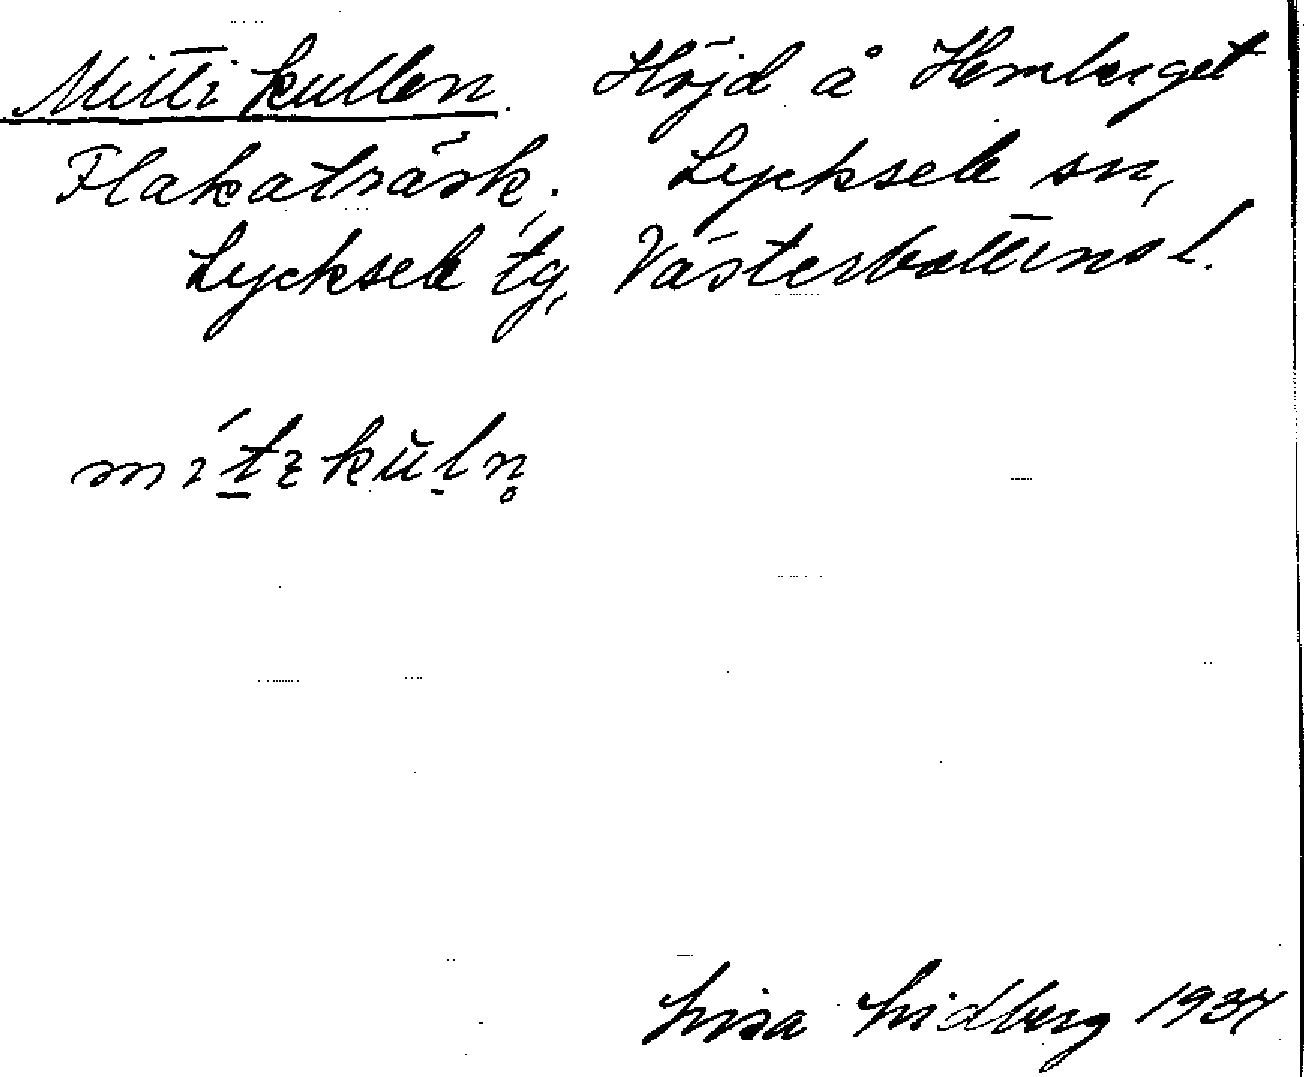 Mittikullen. Höjd å Hemberget
Flakaträsk, Lycksele sn,
Lycksele tg, Västerbottens l.
Lisa Lidberg 1937